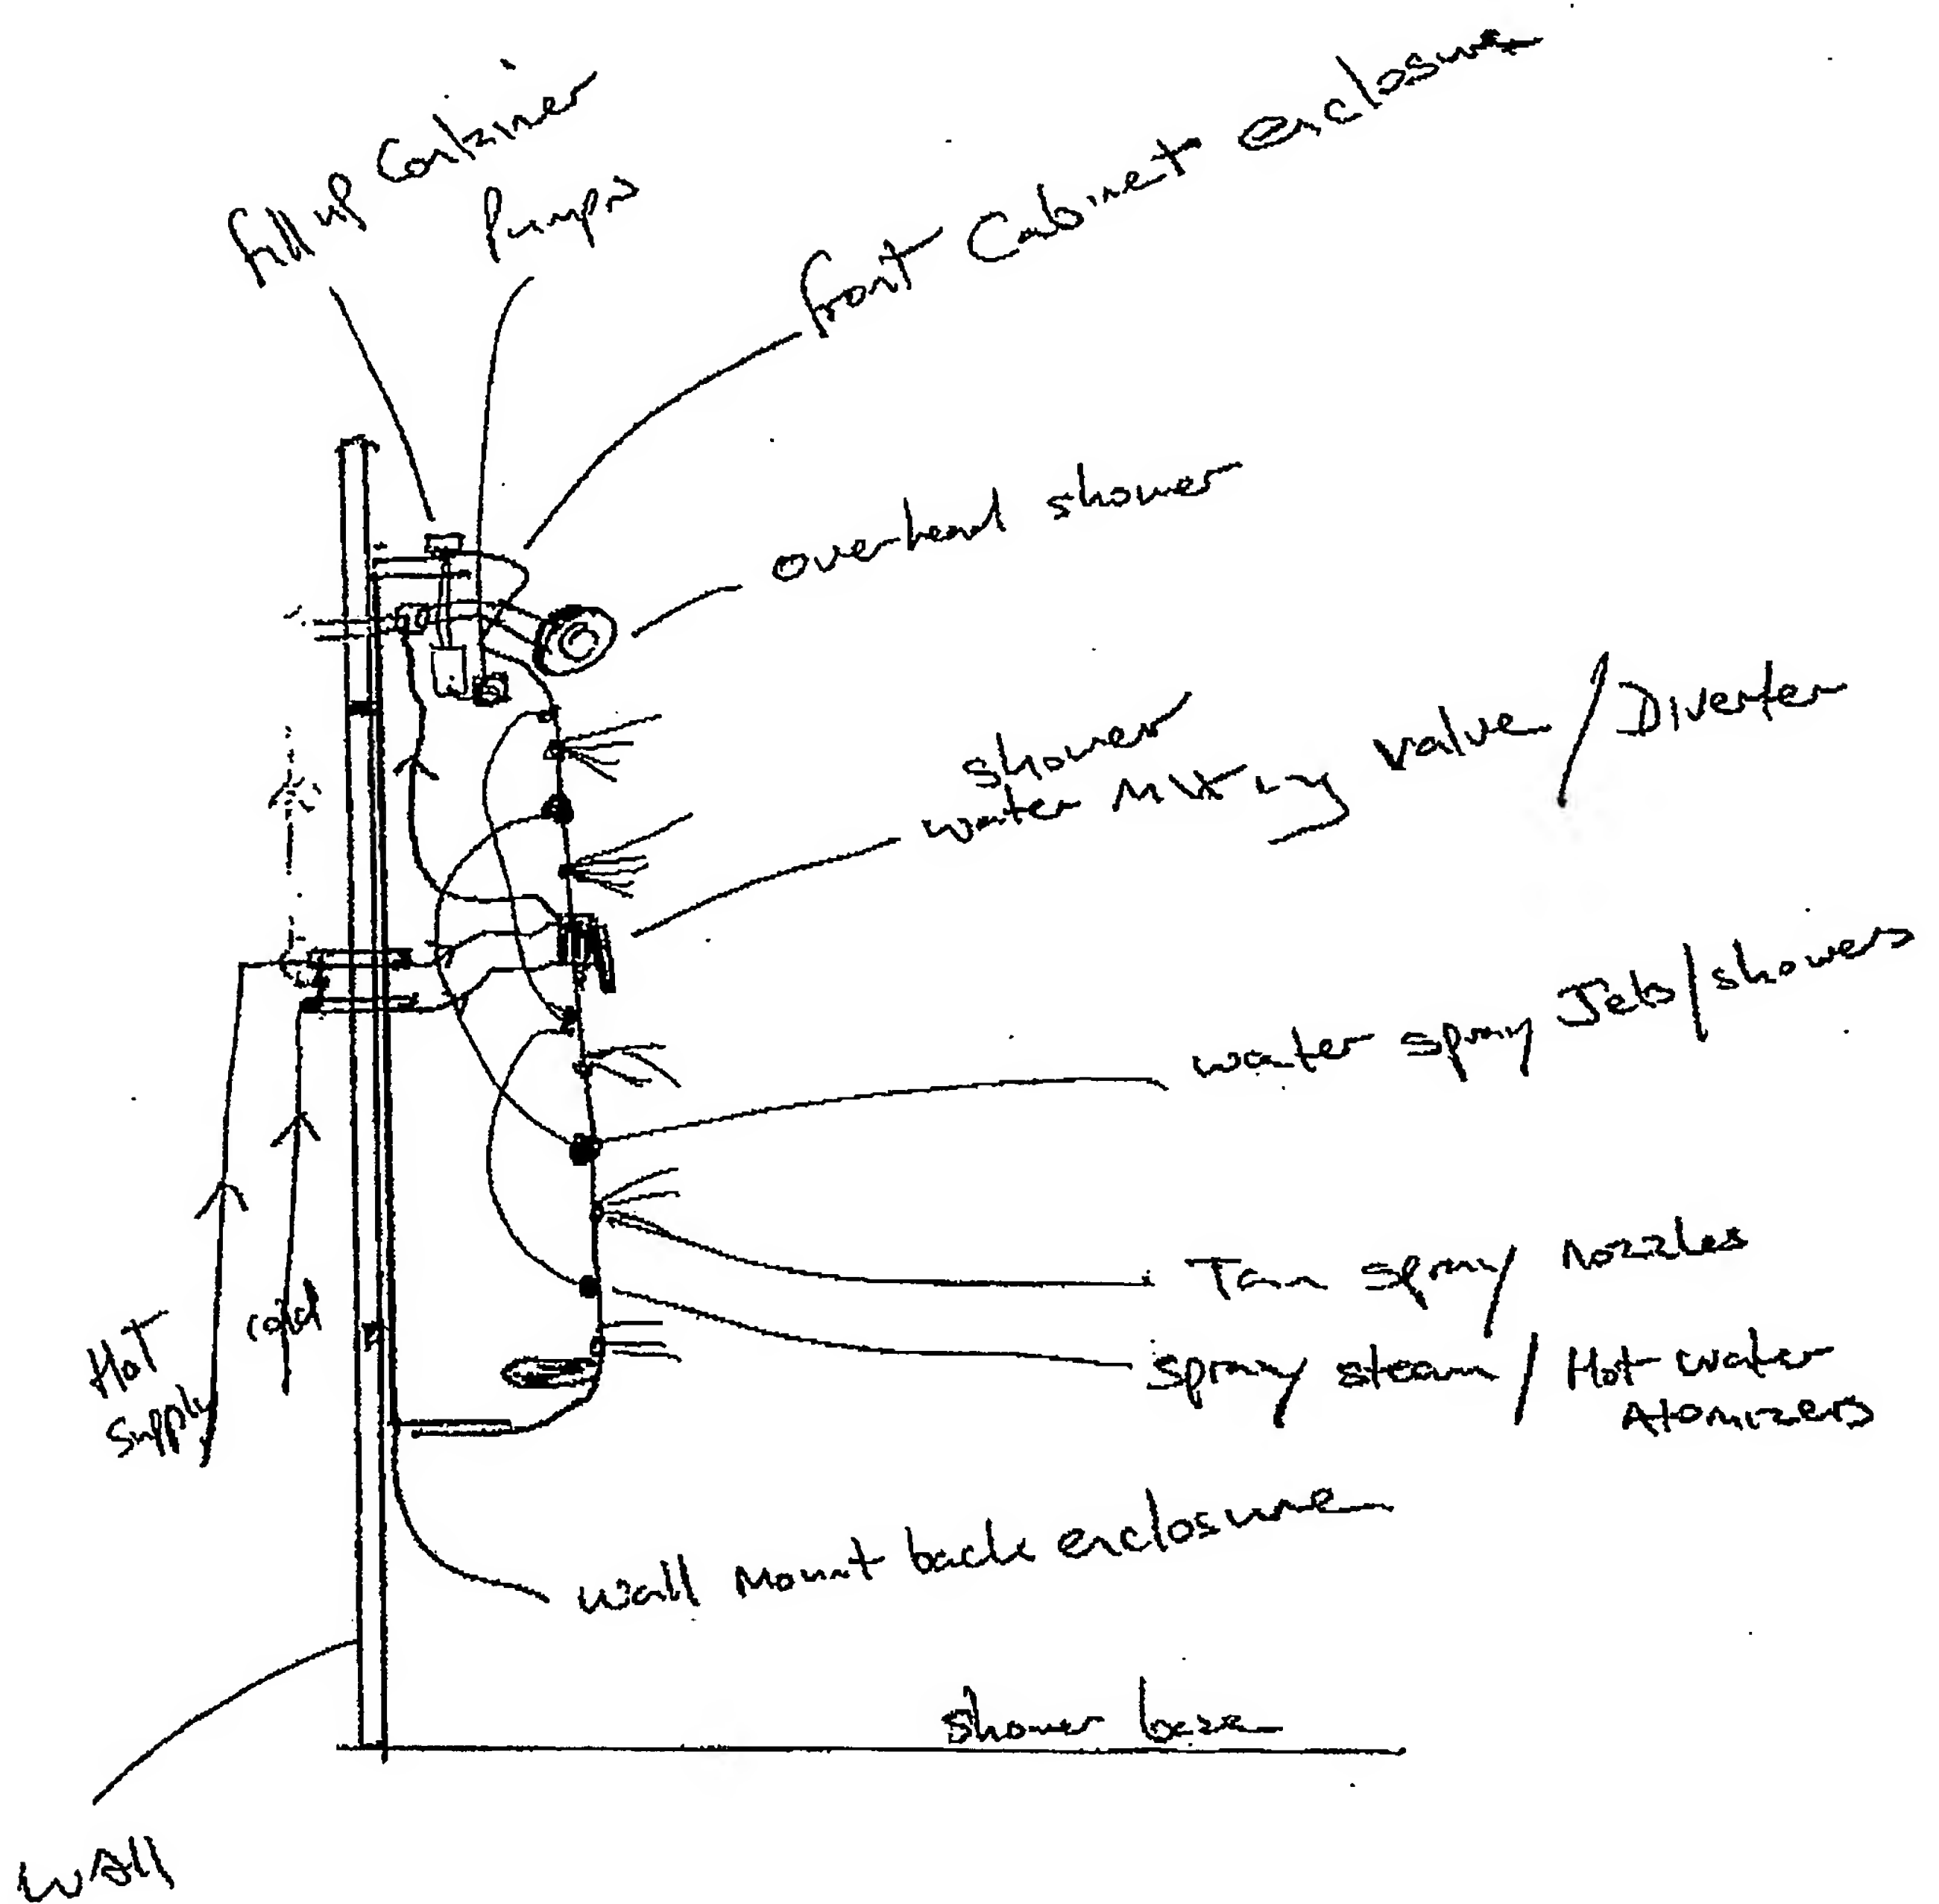 fill up Container
Pumps
front Cabinet enclosure
overhead shower
shower
water Mixing valve / Diverter
water spray Jets/showers
Tan spray Nozzles
spray steam / Hot water
Atomizers
Hot
supply
cold
wall Mount back enclosure
shower base
wall